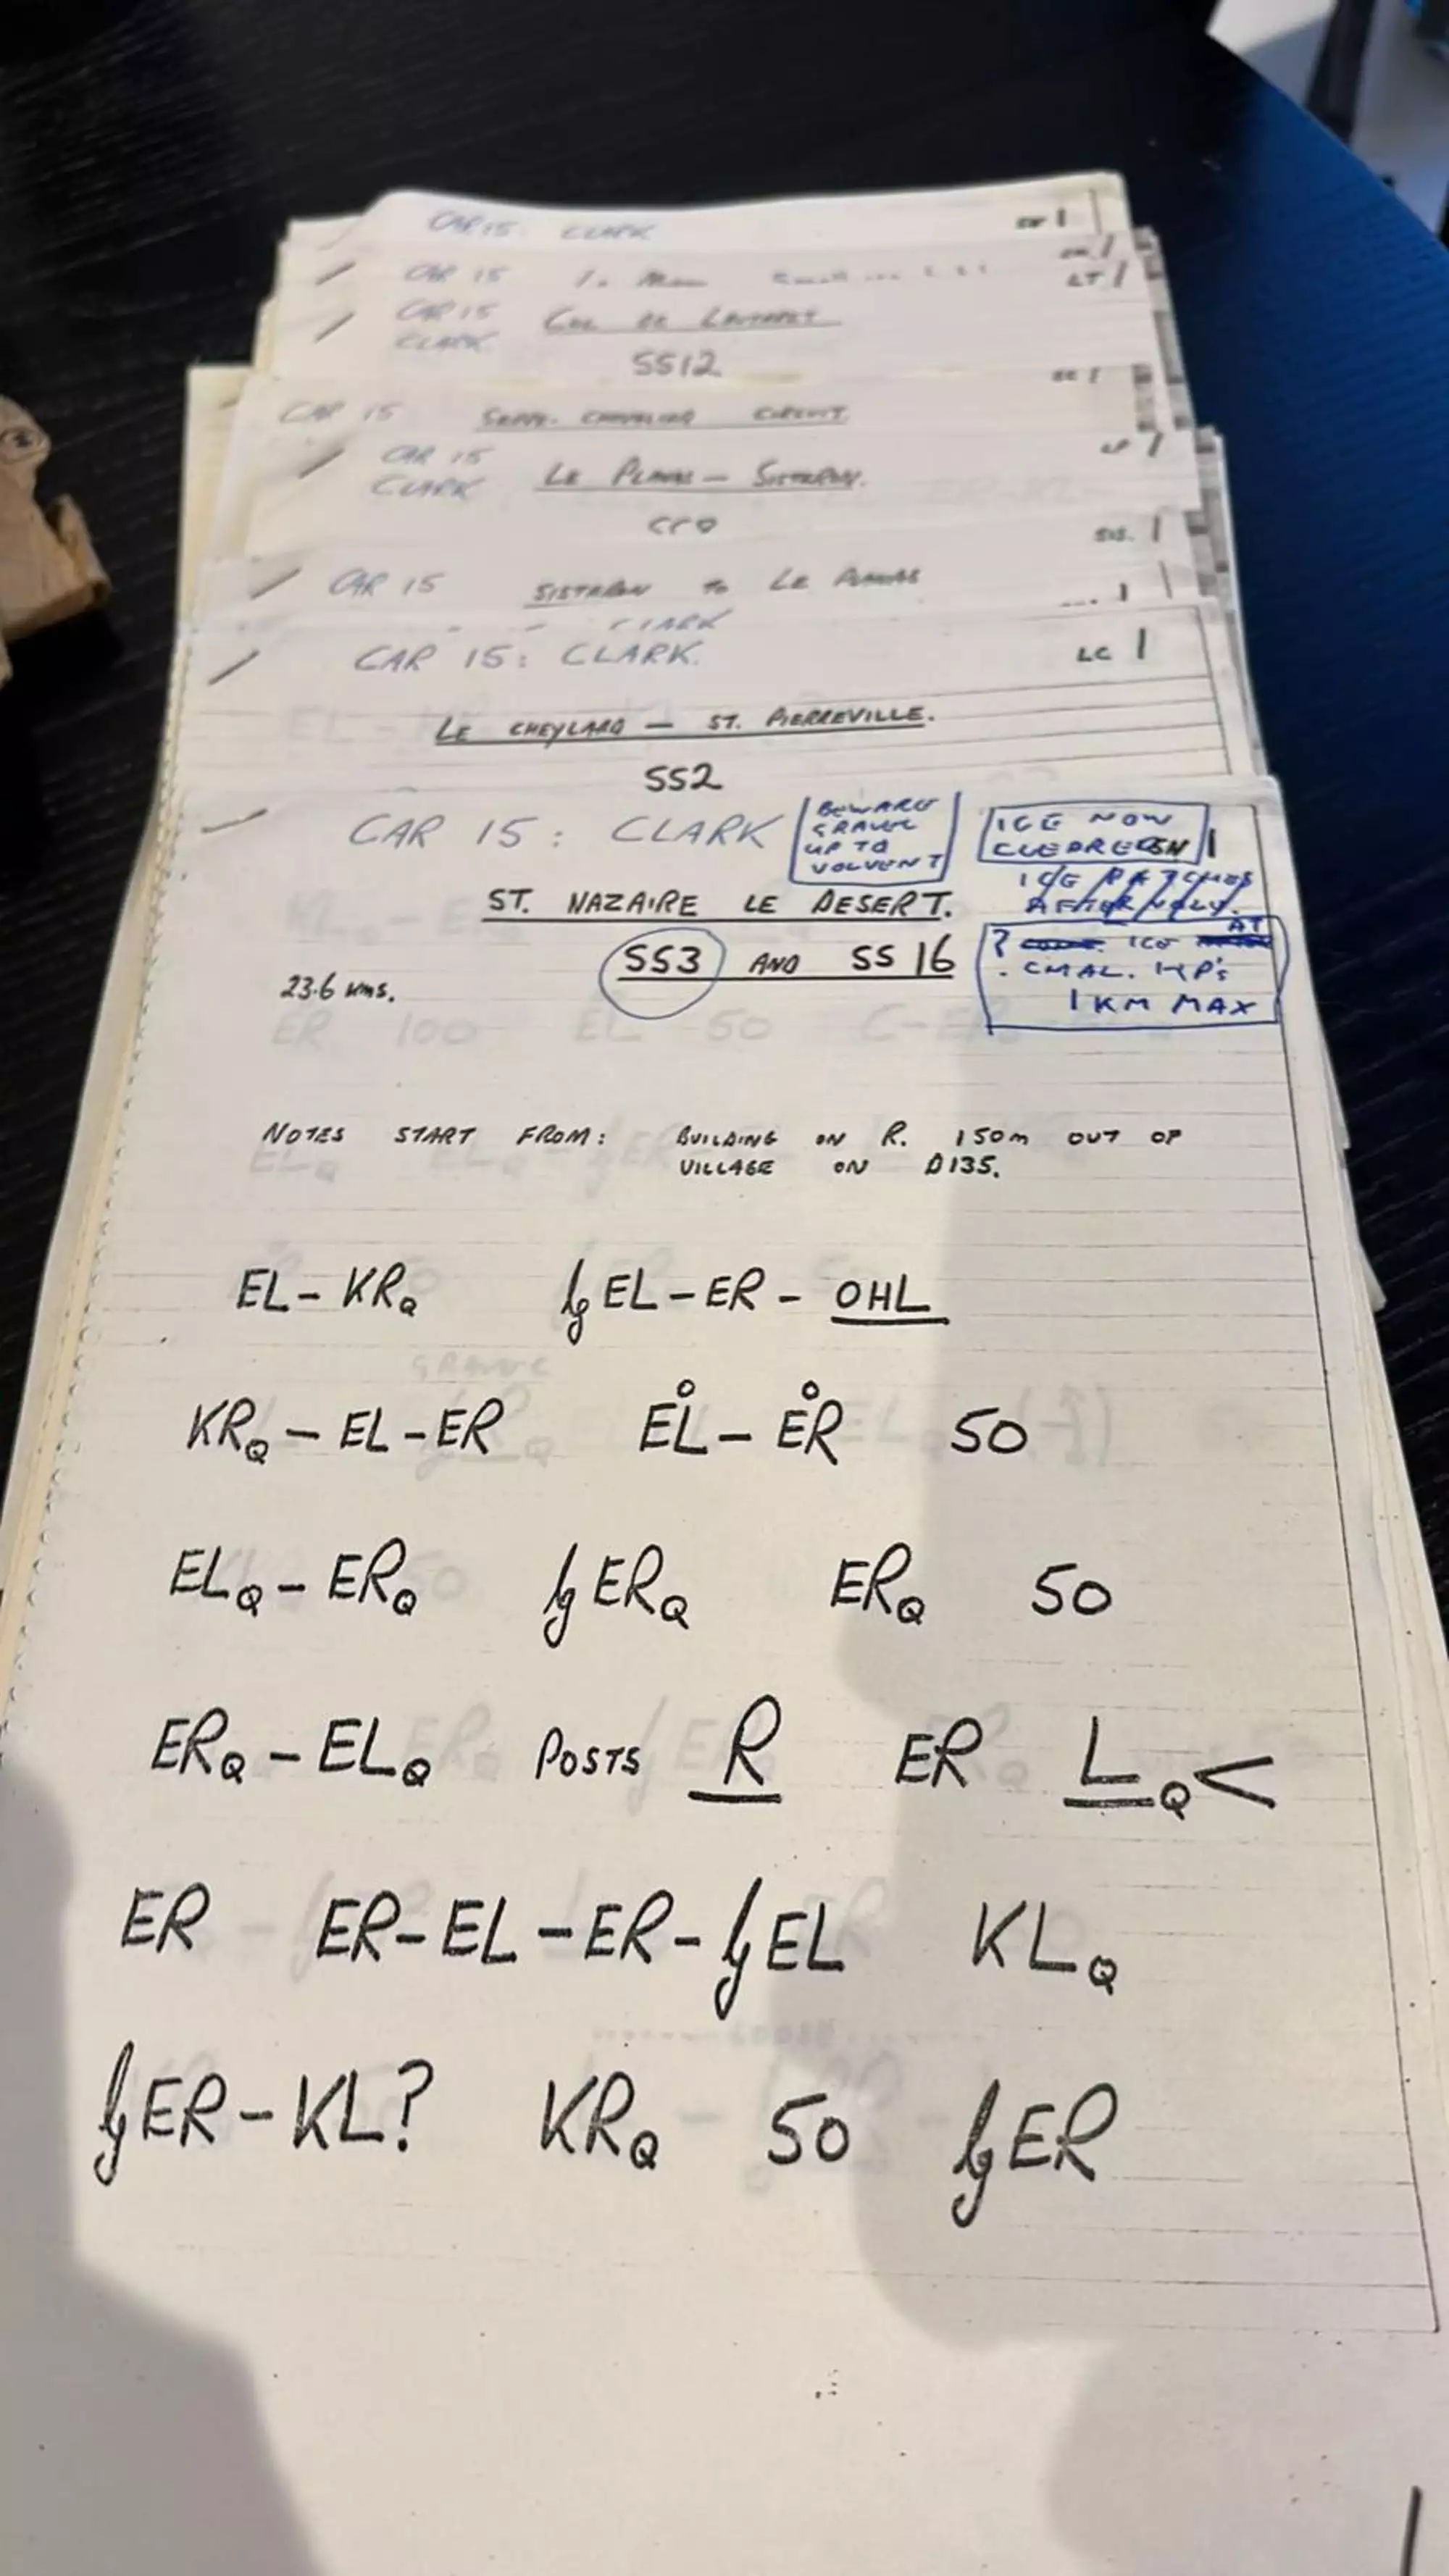 CAR 15: CLARK
CAR 15
CAR 15 COL DE LAUTARET LT 1
CLARK
SS12
CAR 15 CIRCUIT.
CAR 15
CLARK LE PLANAS — SISTERON.
SIS. 1
CAR 15 SISTERON TO LE PLANAS
CLARK
CAR 15: CLARK. LC 1
LE CHEYLARD — ST. PIERREVILLE.
SS2
CAR 15: CLARK SN 1
BEWARE
GRAVEL
UP TO
VOLVENT
ICE NOW
CLEARED
ICE PATCHES
AFTER
ST. NAZAIRE LE DESERT.
SS3 AND SS 16
? ICE AT
CMAL. HP's
1 KM MAX
23.6 kms.
NOTES START FROM: BUILDING ON R. 150m OUT OF
VILLAGE ON D135.
EL - KRQ lg EL - ER - OHL
KRQ - EL - ER EL - ER 50
ELQ - ERQ lg ERQ ERQ 50
ERQ - ELQ POSTS R ER LQ <
ER ER - EL - ER - lg EL KLQ
lg ER - KL? KRQ 50 lg ER